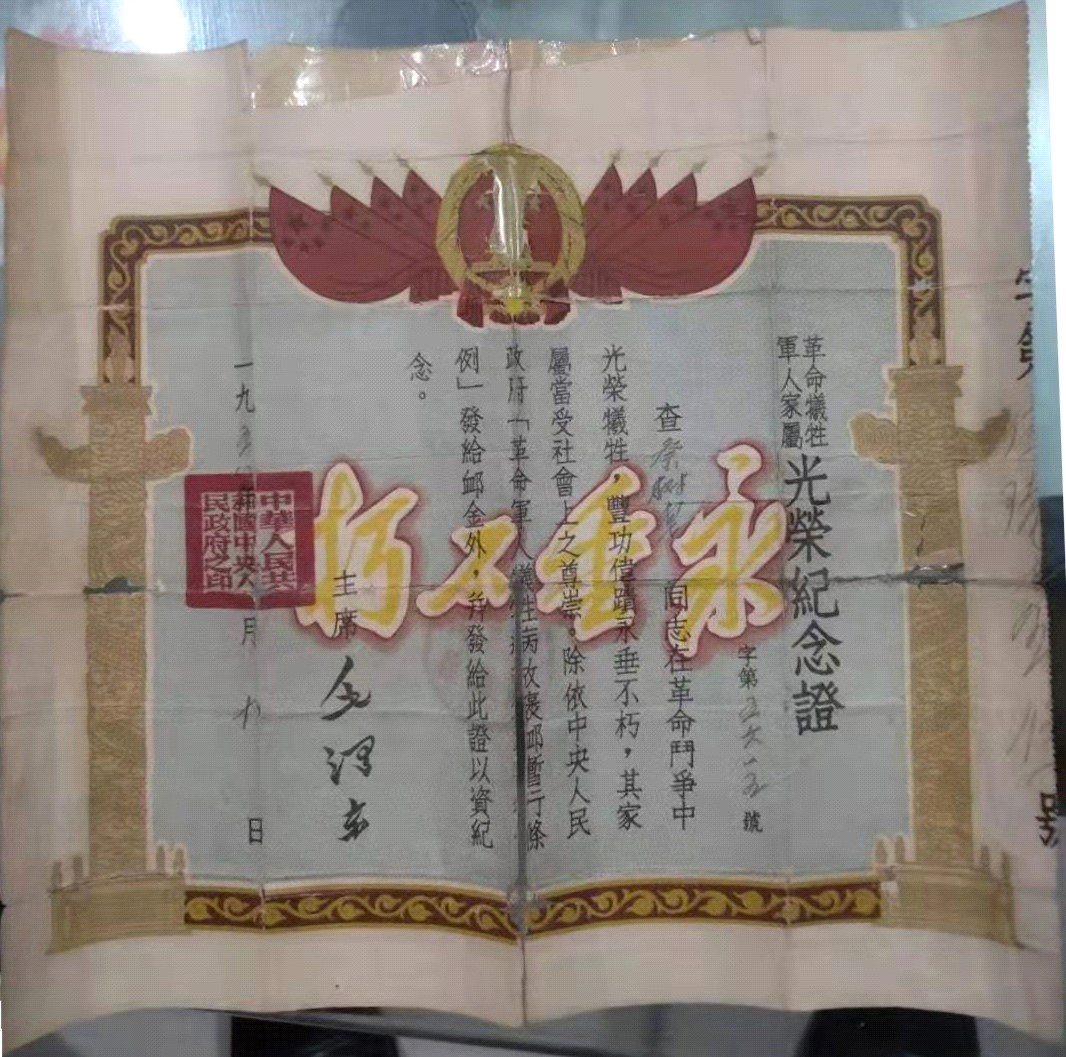 革命犧牲
軍人家屬
光榮紀念證
字第五六一五號
查蔡樹 同志在革命鬥爭中
光榮犧牲，豐功偉蹟永垂不朽，其家
屬當受社會上之尊崇。除依中央人民
政府「革命軍人犧牲病故褒卹暫行條
例」發給卹金外，并發給此證以資紀
念。
永垂不朽
主席 毛澤東
一九五 年 月 日
中華人民共
和國中央人
民政府之印
字第
號